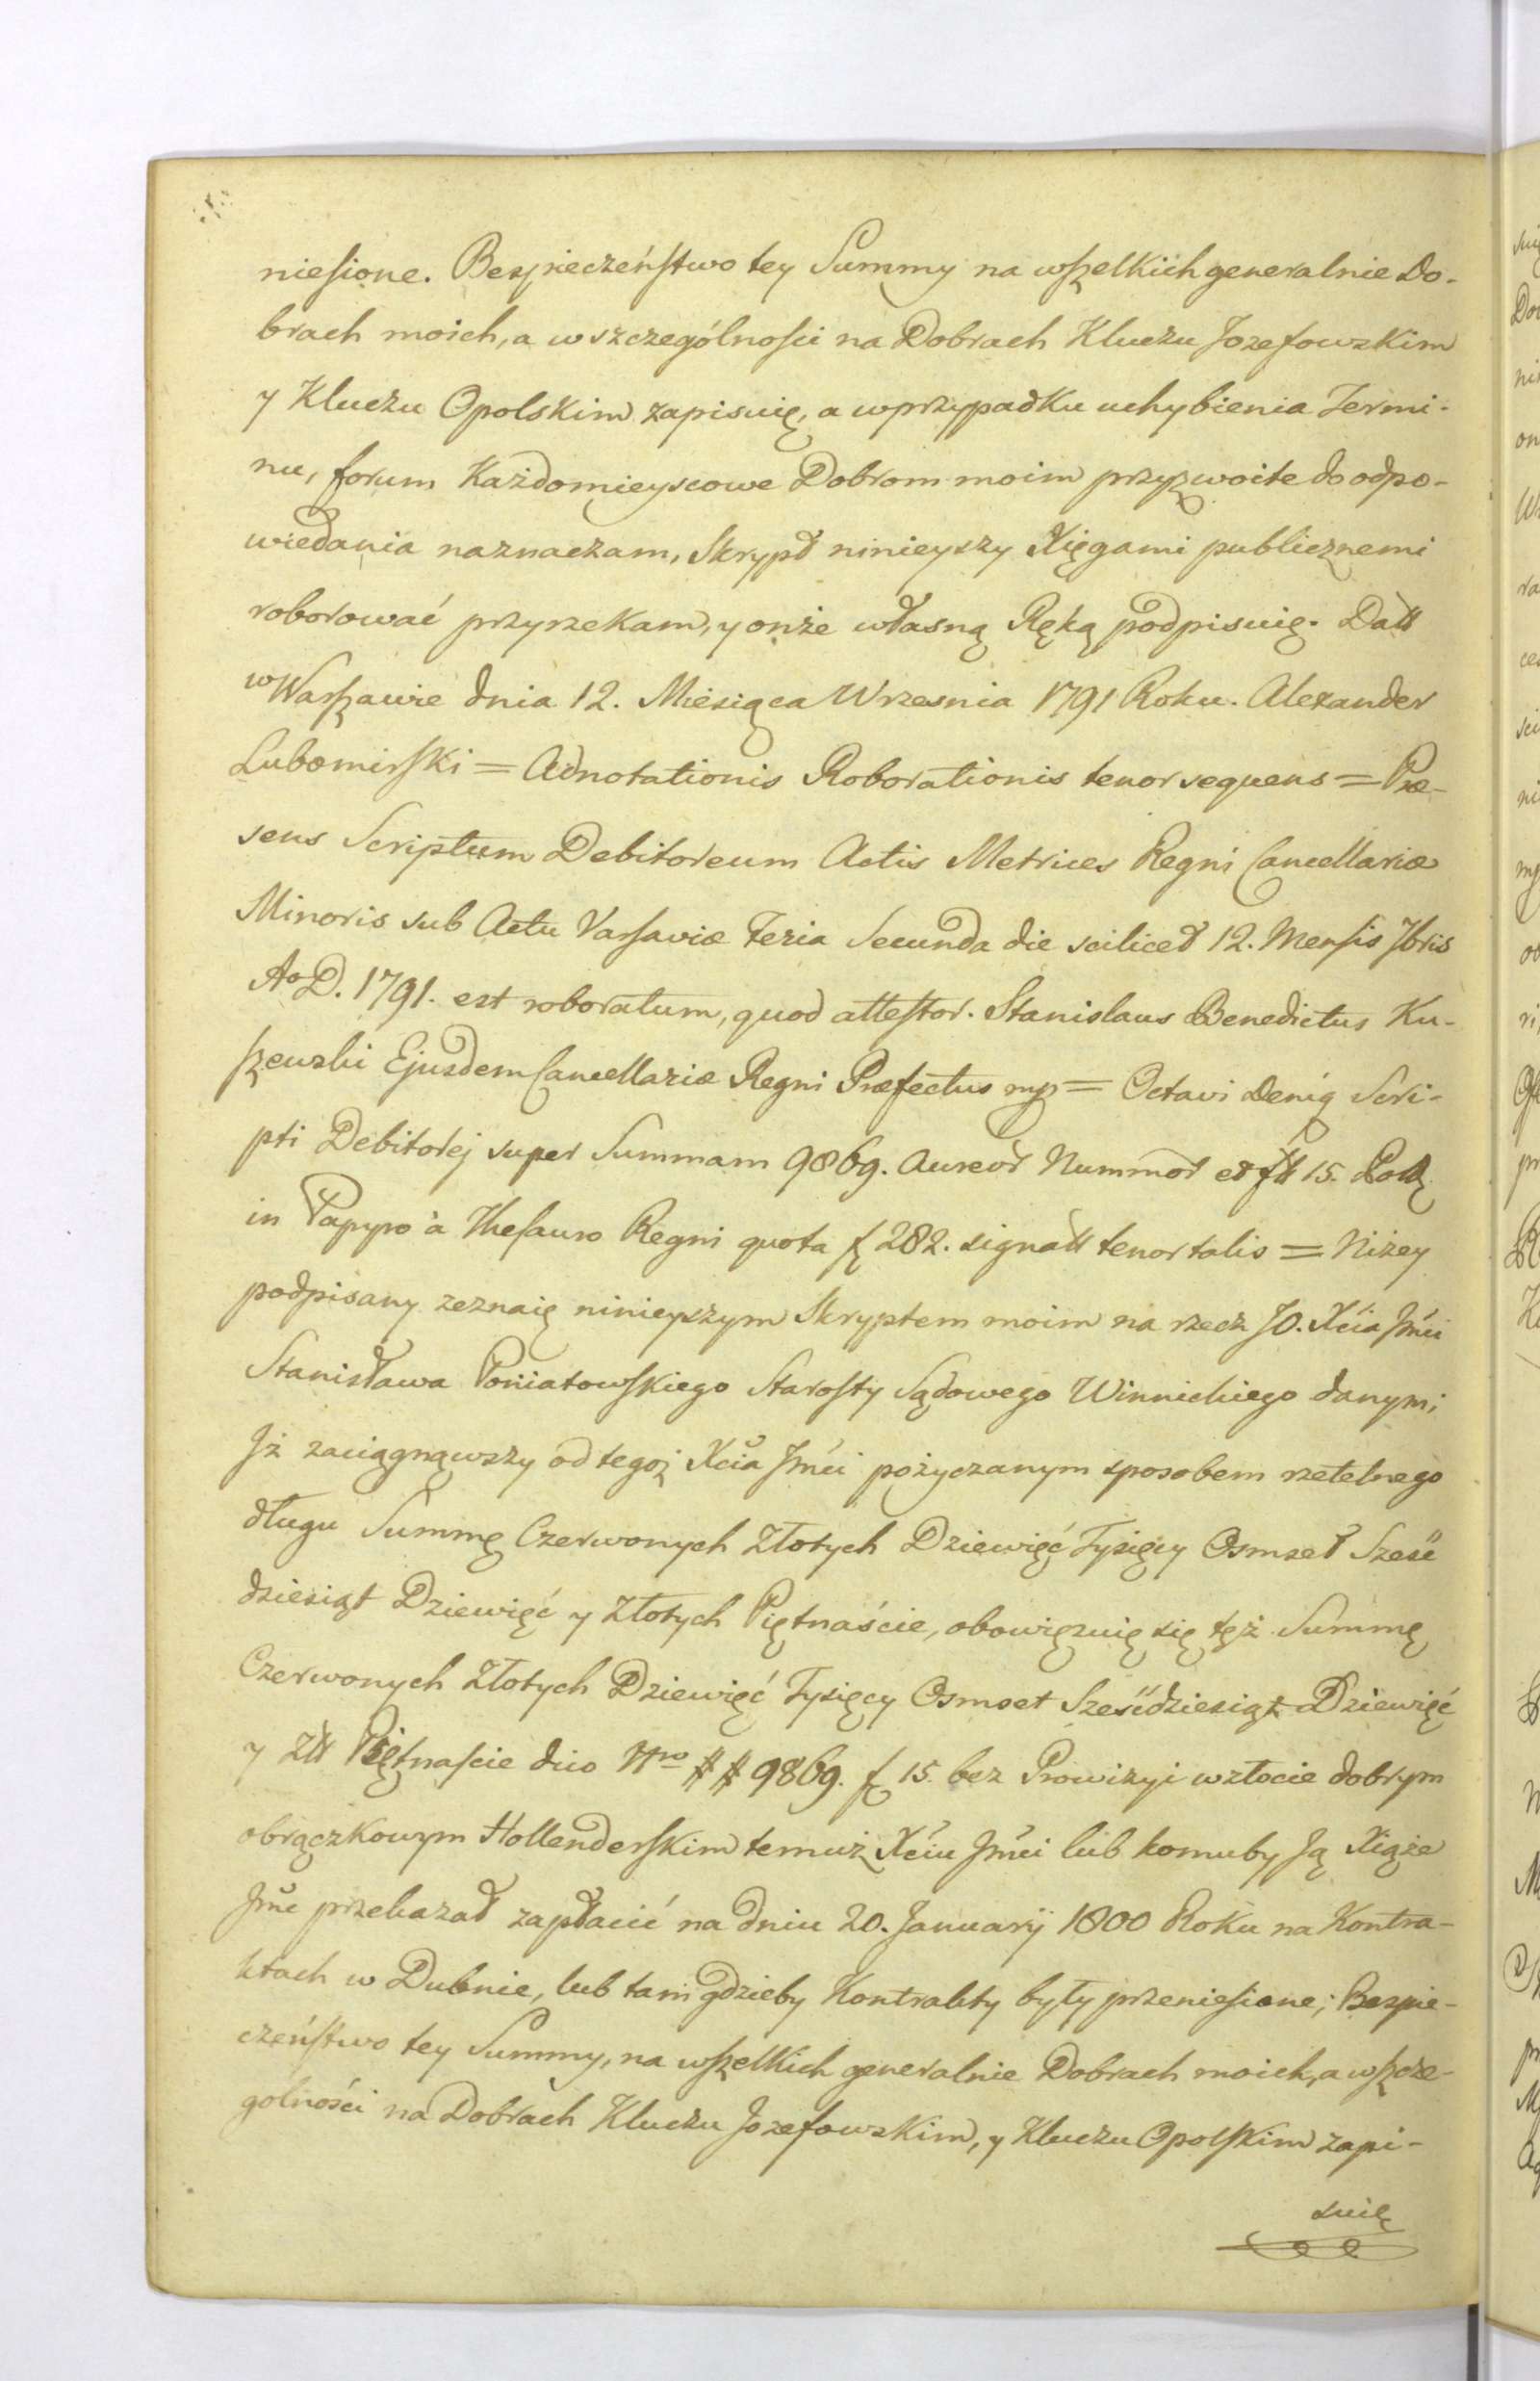 niesione. Bespieczeństwo tey Summy na wszelkich generalnie Do-
brach moich, a wszczególnosci na Dobrach Kluczu Jozefowskim
y Kluczu Opolskim zapisuię, a wprzypadku uchybienia Termi-
nu, forum Każdomieyscowe Dobrom moim przyzwoite do odpo-
wiedania naznaczam, Skrypt ninieyszy Xięgami publicznemi
roborować przyrzekam, y onże własną Ręką podpisuię. Datt
w Warszawie dnia 12. Miesiąca Wrzesnia 1791 Roku. Alexander
Lubomirski = Adnotationis Roborationis tenor sequens = Præ-
sens Scriptum Debitoreum Actis Metrices Regni Cancellariæ
Minoris sub Actu Varsaviæ Feria Secunda die scilicet 12. Mensis 7bris
Ao D. 1791. est roboratum, quod attestor. Stanislaus Benedictus Ku-
szewski Ejusdem Cancellariæ Regni Præfectus mp = Octavi Deniq Scri-
pti Debitorej super Summam 9869. Aureor Nummor et ftt 15. Poll
in Papyro à Thesauro Regni quota f 282. signatt tenor talis = Niżey
podpisany zeznaię ninieyszym Skryptem moim na rzecz JO. Xcia Jmci
Stanisława Poniatowskiego Starosty Sądowego Winnickiego danym;
Jż zaciągnąwszy od tegoż Xcia Jmci pożyczanym sposobem rzetelnego
długu Summę Czerwonych Złotych Dziewięć Tysięcy Osmset Sześć
dziesiąt Dziewięć y Złotych Piętnaście, obowięzuię się tęż Summę
Czerwonych Złotych Dziewięć Tysięcy Osmset Sześćdziesiąt Dziewięć
y Ztt Piętnaście dico Nro ## 9869. f 15. bez Prowizyi wzłocie dobrym
obrączkowym Hollenderskim temuż Xciu Jmci lub komuby Ją Xiąże
Jmć przekazał zapłacić na dniu 20. Januarij 1800 Roku na Kontra-
ktach w Dubnie, lub tam gdzieby Kontrakty były przeniesione; Bezpie-
czeństwo tey Summy, na wszelkich generalnie Dobrach moich, a wszcze-
gólności na Dobrach Kluczu Jozefowskim, y Kluczu Opolskim zapi-
suię